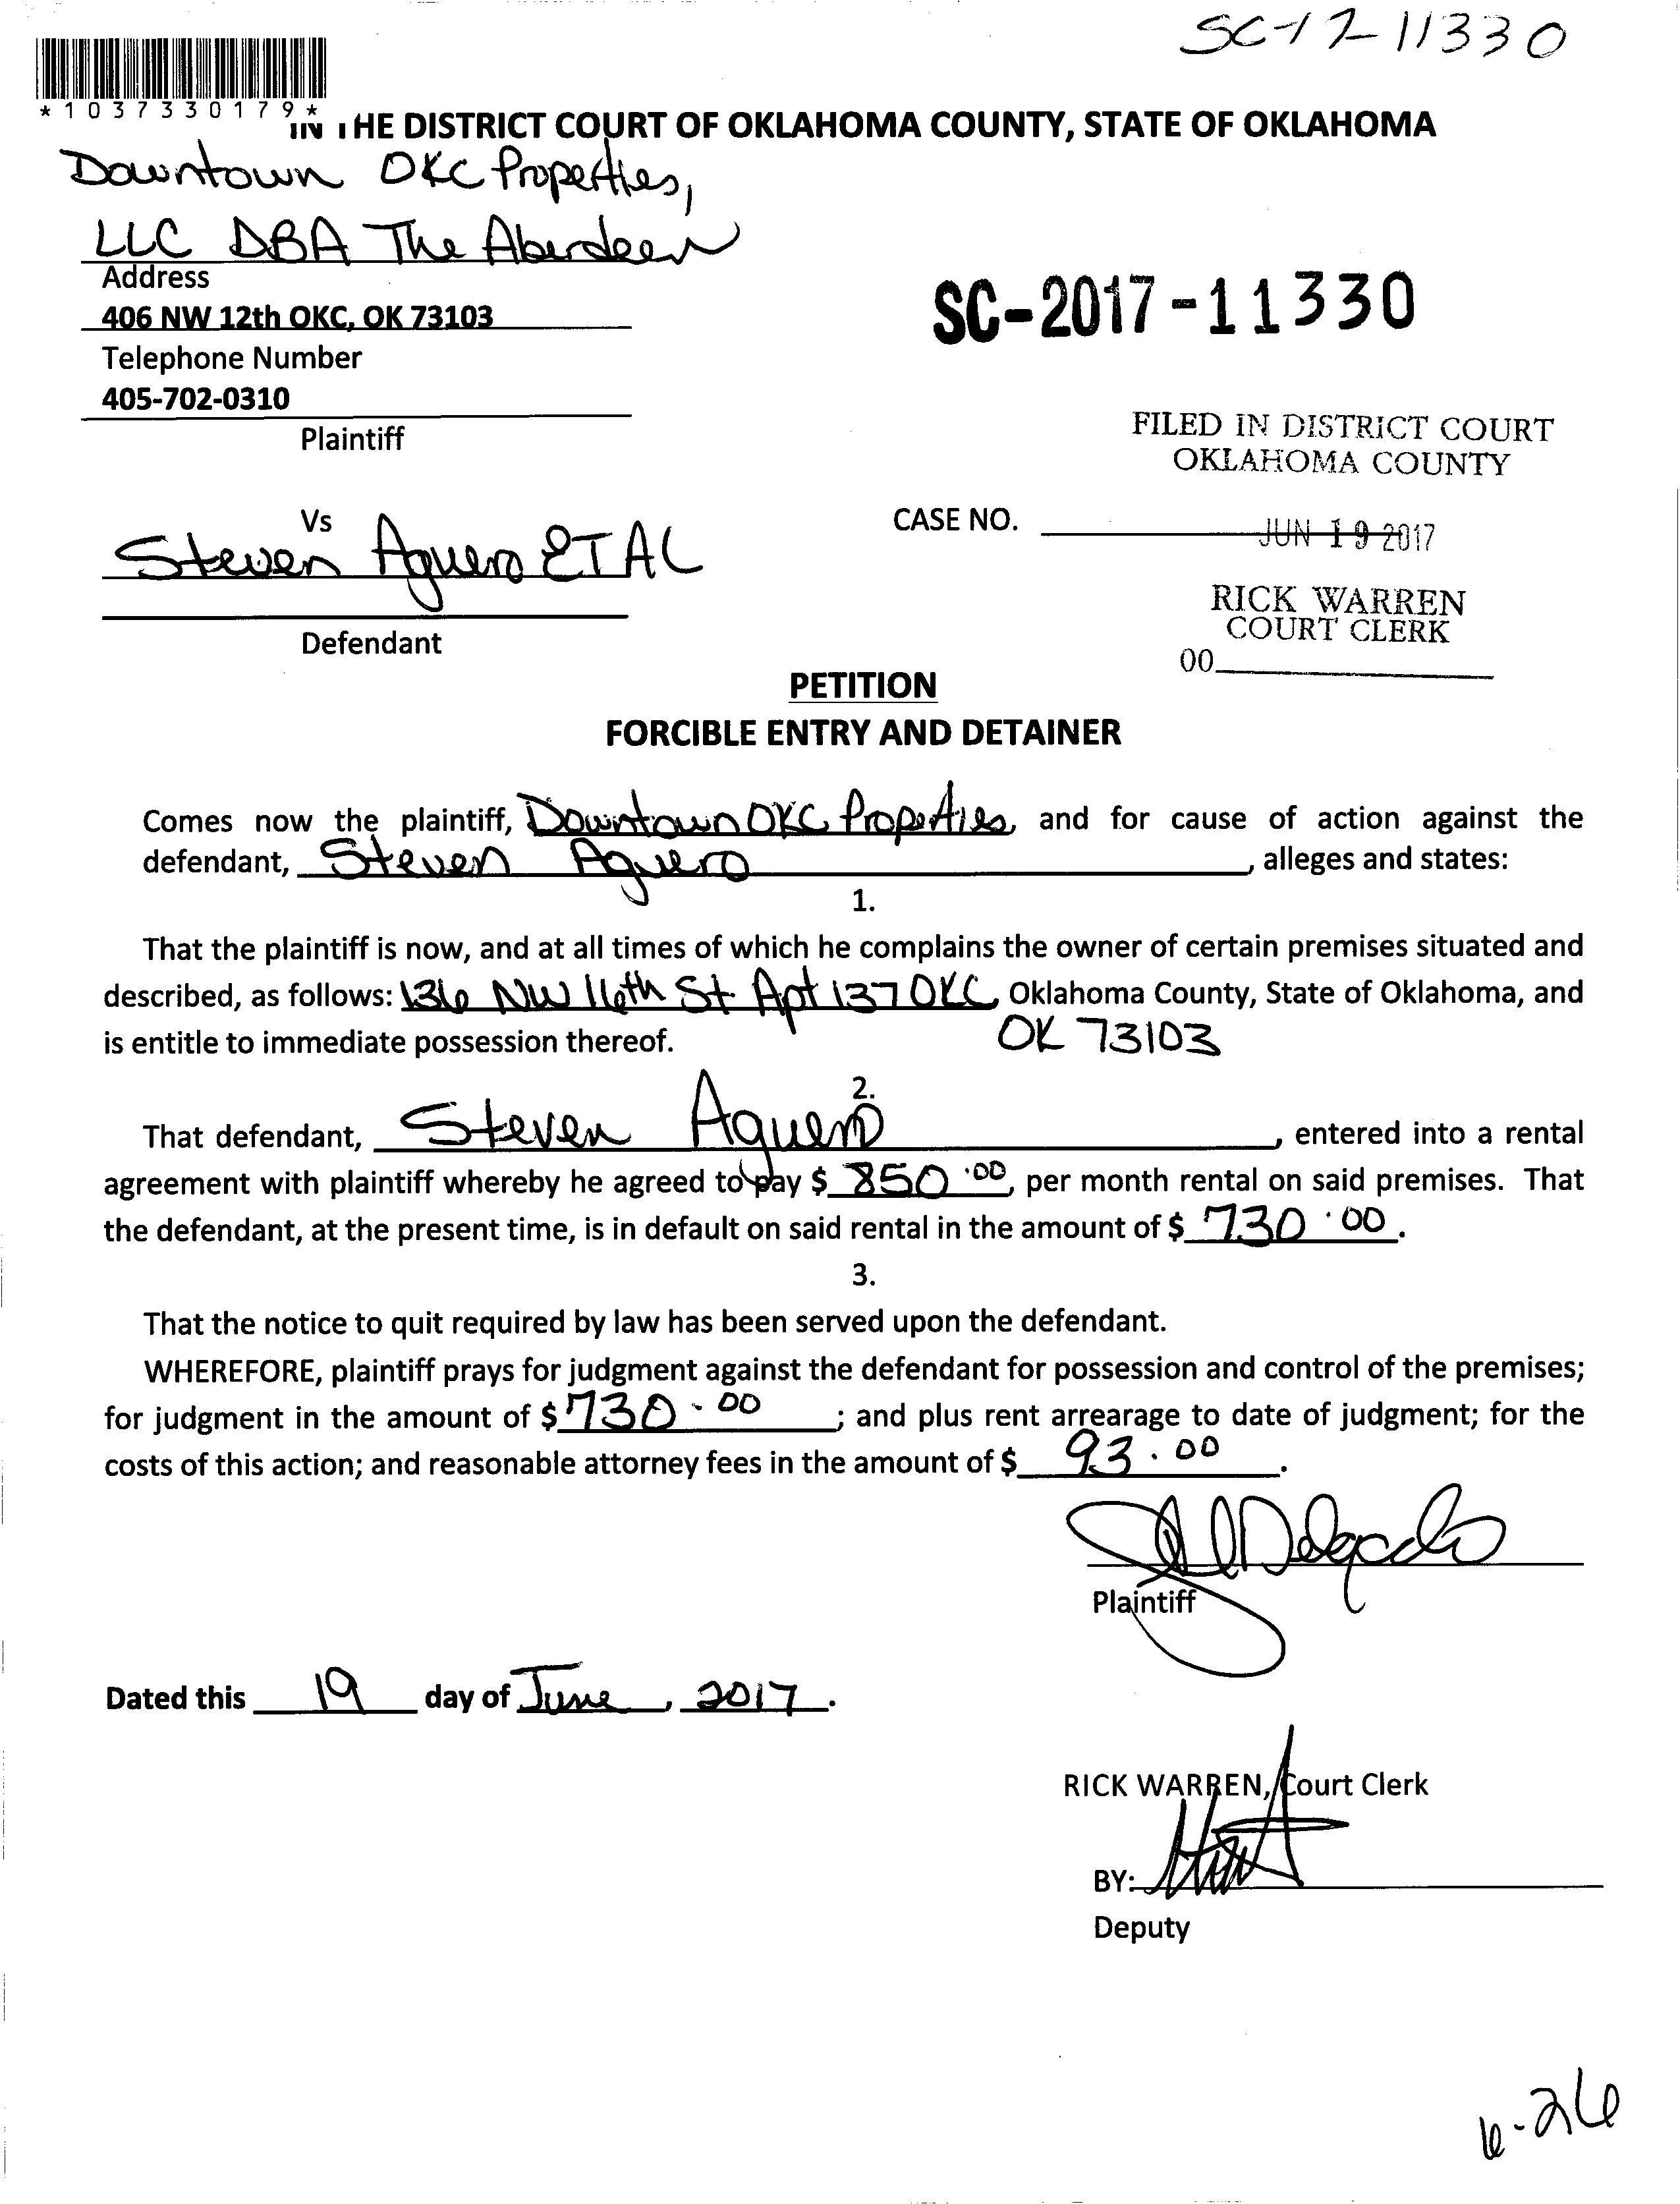 SC-17-11330
*1037330179*
IN THE DISTRICT COURT OF OKLAHOMA COUNTY, STATE OF OKLAHOMA
Downtown OKC Properties,
LLC DBA The Aberdeen
Address
406 NW 12th OKC, OK 73103
SC-2017-11330
Telephone Number
405-702-0310
Plaintiff
FILED IN DISTRICT COURT
OKLAHOMA COUNTY
Vs
CASE NO.
JUN 19 2017
Steven Aguero ET AL
RICK WARREN
COURT CLERK
Defendant
00
PETITION
FORCIBLE ENTRY AND DETAINER
Comes now the plaintiff, Downtown OKC Properties, and for cause of action against the
defendant, Steven Aguero, alleges and states:
1.
That the plaintiff is now, and at all times of which he complains the owner of certain premises situated and
described, as follows: 136 NW 16th St Apt 137 OKC, Oklahoma County, State of Oklahoma, and
is entitle to immediate possession thereof. OK 73103
2.
That defendant, Steven Aguero, entered into a rental
agreement with plaintiff whereby he agreed to pay $ 850.00, per month rental on said premises. That
the defendant, at the present time, is in default on said rental in the amount of $ 730.00.
3.
That the notice to quit required by law has been served upon the defendant.
WHEREFORE, plaintiff prays for judgment against the defendant for possession and control of the premises;
for judgment in the amount of $ 730.00; and plus rent arrearage to date of judgment; for the
costs of this action; and reasonable attorney fees in the amount of $ 93.00.
Delgado
Plaintiff
Dated this 19 day of June, 2017.
RICK WARREN, Court Clerk
BY:
Deputy
6-26